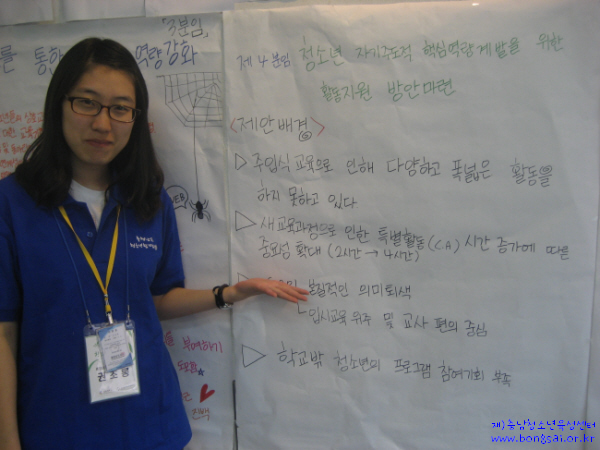 「3분임」
를 통한
역량강화
제 4분임 청소년 자기주도적 핵심역량 계발을 위한
활동지원 방안마련
<제안배경>
▷ 주입식 교육으로 인해 다양하고 폭넓은 활동을
하지 못하고 있다
▷ 새교육과정으로 인한 특별활동(C.A) 시간 증가에 따른
중요성 확대 (2시간 → 4시간)
본질적인 의미퇴색
입시교육 위주 및 교사 편의 중심
▷ 학교밖 청소년의 프로그램 참여기회 부족
부여하기
재)충남청소년육성센터
www.bongsai.or.kr